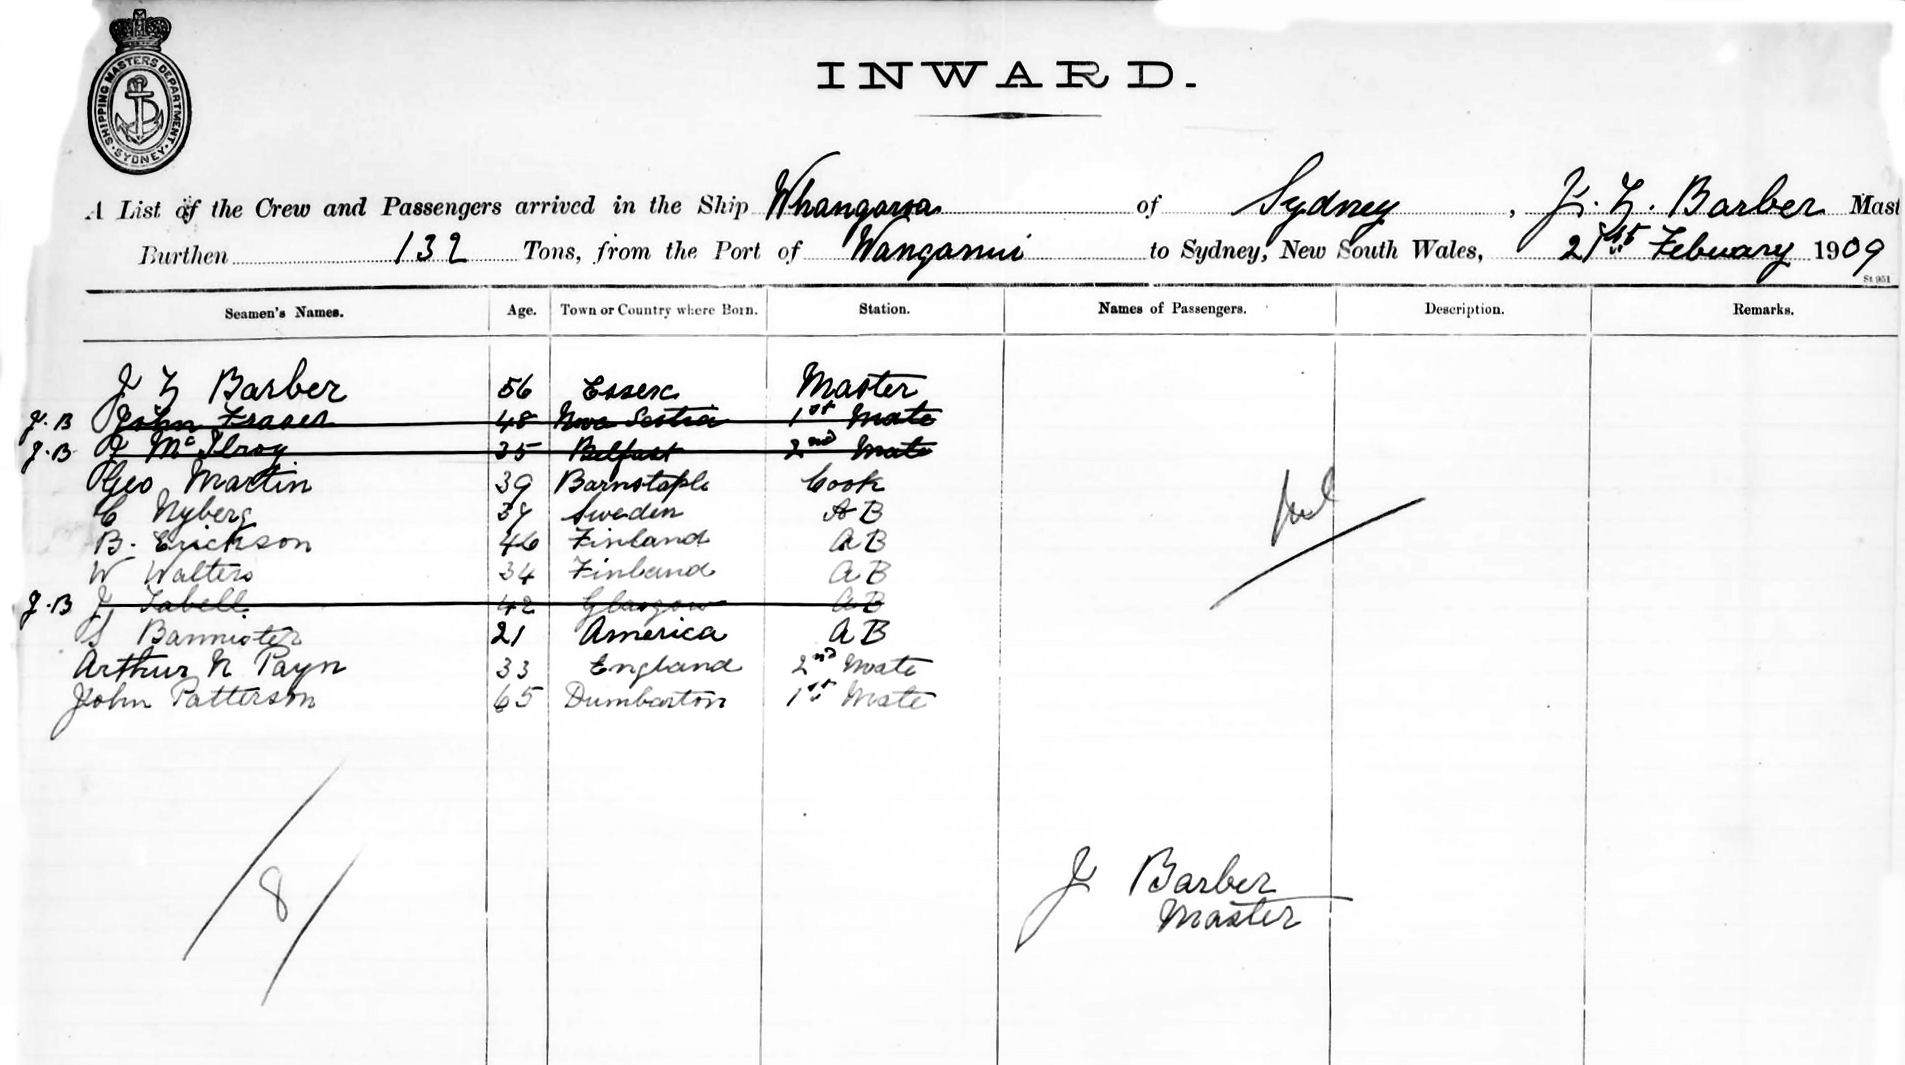 SHIPPING MASTERS DEPARTMENT. SYDNEY.
INWARD.
A List of the Crew and Passengers arrived in the Ship Whangaroa of Sydney, J. Z. Barber Mast
Burthen 132 Tons, from the Port of Wanganui to Sydney, New South Wales, 21st Febuary 1909
St 951
Seamen's Names. Age. Town or Country where Born. Station. Names of Passengers. Description. Remarks.
J Z Barber 56 Essex Master
J.B John Fraser 48 Nova Scotia 1st Mate
J.B J McIlroy 35 Belfast 2nd Mate
Geo Martin 39 Barnstaple Cook
C Nyberg Sweden AB
B. Erickson 46 Finland AB
W Walters 34 Finland AB
J.B J Tabell 42 Glasgow AB
Bannister 21 America AB
Arthur N Payn 33 England 2nd Mate
John Patterson 65 Dumbarton 1st Mate
8
J Barber
Master